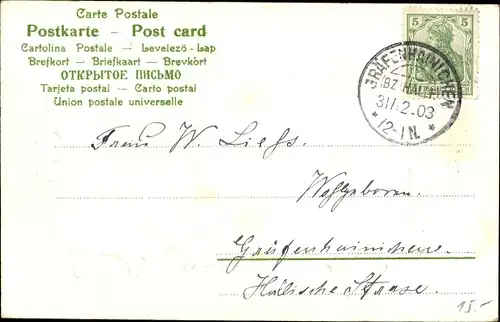 Carte Postale
Postkarte — Post card
Cartolina Postale — Levelező-Lap
Brefkort — Briefkaart — Brevkort
ОТКРЫТОЕ ПИСЬМО
Tarjeta postal — Carto postal
Union postale universelle
5 5
GRÄFENHAINICHEN
(BZ. HALLE)
31.12.03
* 12-1N. *
Frau W. Liess.
Wohlgeboren.
Gräfenhainichen.
Hallische Strasse.
15.-